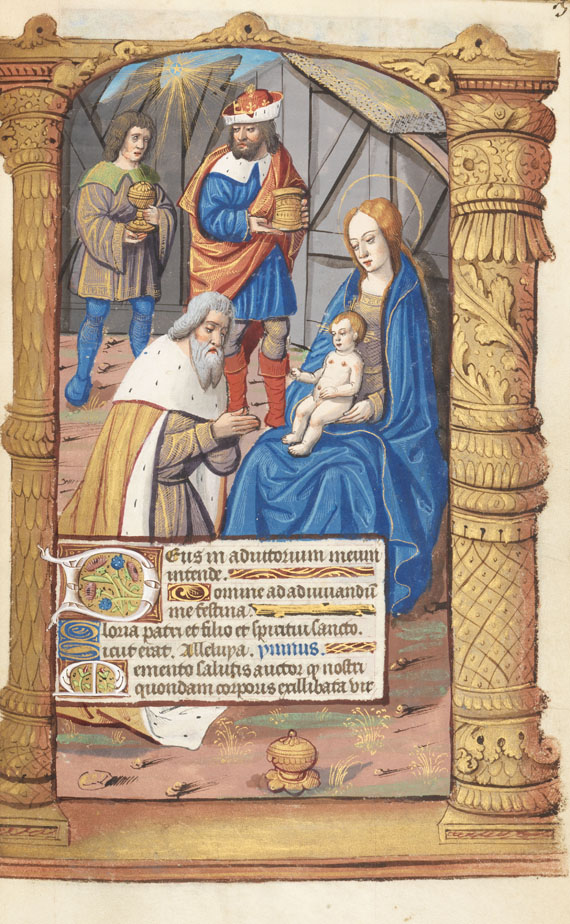 Deus in adiutorium meum
intende.
Domine ad adiuuandū
me festina.
Gloria patri et filio et spiritui sancto.
Sicut erat. Alleluya. ymnus.
Memento salutis auctor q̧ nostri
quondam corporis ex illibata vir